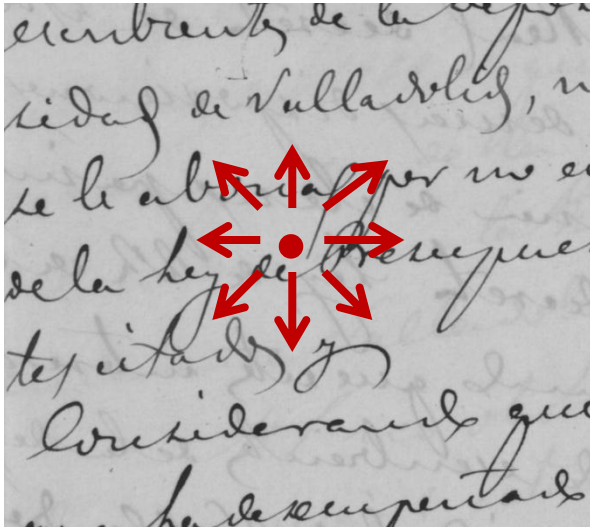 escribiente de la
sidad de Valladolid,
se le abonas por no
de la Ley de Presupue
tejitados y
Considerando que
ha desempeñado